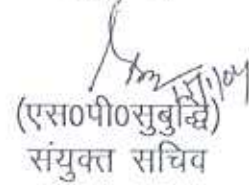 (एस0पी0सुबुद्धि)
संयुक्त सचिव